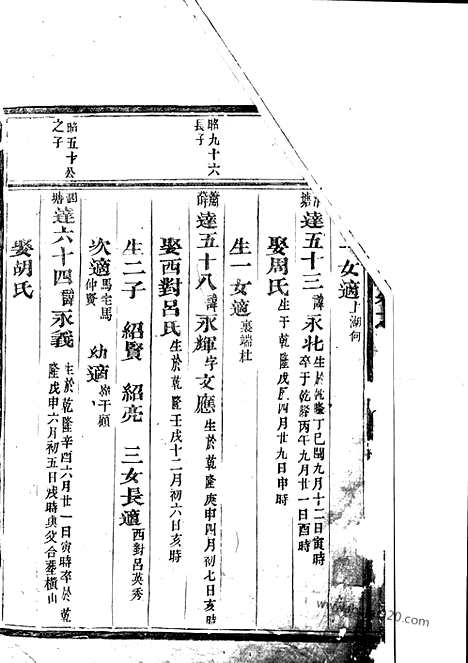 一女適上湖何
塘達五十三諱永北生於乾隆丁巳閏九月十二日寅時卒于乾隆丙午九月廿一日酉時
娶周氏生于乾隆戊辰四月廿九日申時
生一女適裏端杜
昭九十六長子
達五十八諱永輝字文應生於乾隆庚申四月初七日亥時
娶西對呂氏生於乾隆壬戌十二月初六日亥時
生二子 紹賢 紹亮 三女長適西對呂英秀
次適馬宅馬仲賢 幼適干順
昭五十公之子
塘達六十四諱永義生於乾隆辛酉六月廿一日寅時卒於乾隆戊申六月初五日戌時與父合葬橫山
娶胡氏